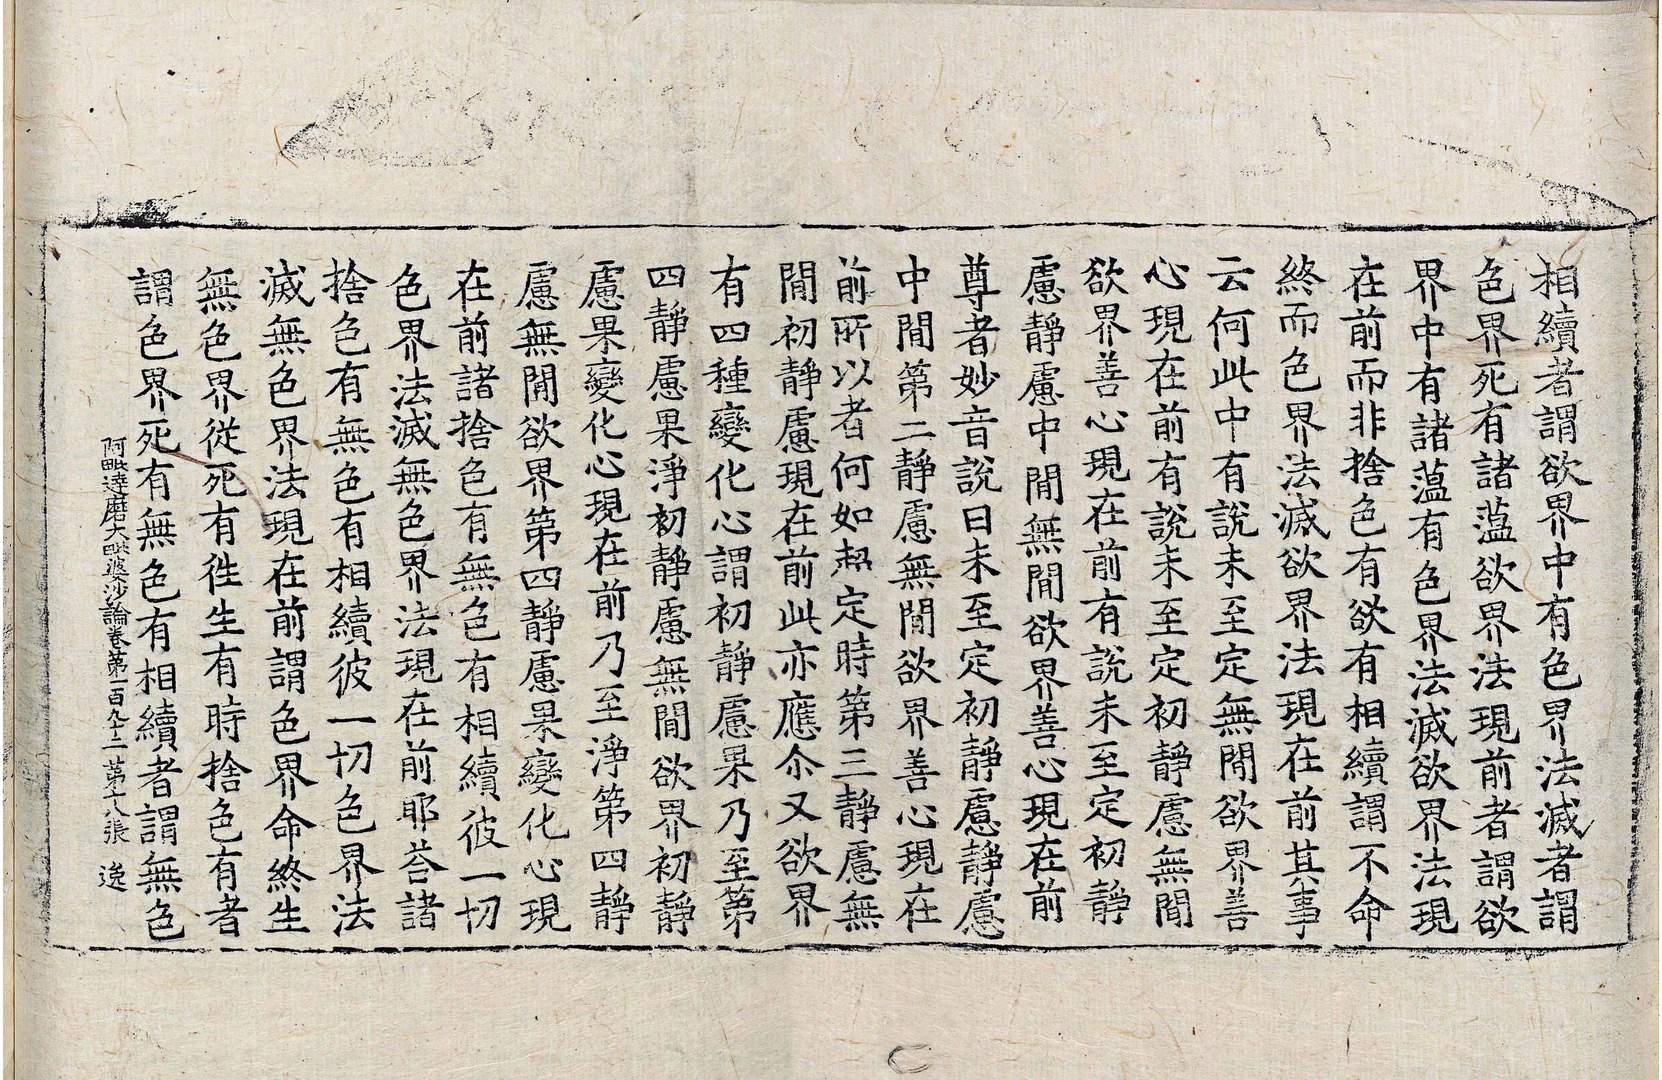 相續者謂欲界中有色界法滅者謂
色界死有諸薀欲界法現前者謂欲
界中有諸薀有色界法滅欲界法現
在前而非捨色有欲有相續謂不命
終而色界法滅欲界法現在前其事
云何此中有說未至定無閒欲界善
心現在前有說未至定初靜慮無閒
欲界善心現在前有說未至定初靜
慮靜慮中閒無閒欲界善心現在前
尊者妙音說曰未至定初靜慮靜慮
中閒第二靜慮無閒欲界善心現在
前所以者何如超定時第三靜慮無
閒初靜慮現在前此亦應尒又欲界
有四種變化心謂初靜慮果乃至第
四靜慮果淨初靜慮無閒欲界初靜
慮果變化心現在前乃至淨第四靜
慮無閒欲界第四靜慮果變化心現
在前諸捨色有無色有相續彼一切
色界法滅無色界法現在前耶荅諸
捨色有無色有相續彼一切色界法
滅無色界法現在前謂色界命終生
無色界從死有徃生有時捨色有者
謂色界死有無色有相續者謂無色
阿毗達磨大毗婆沙論卷第一百九十二 第十八張 逸